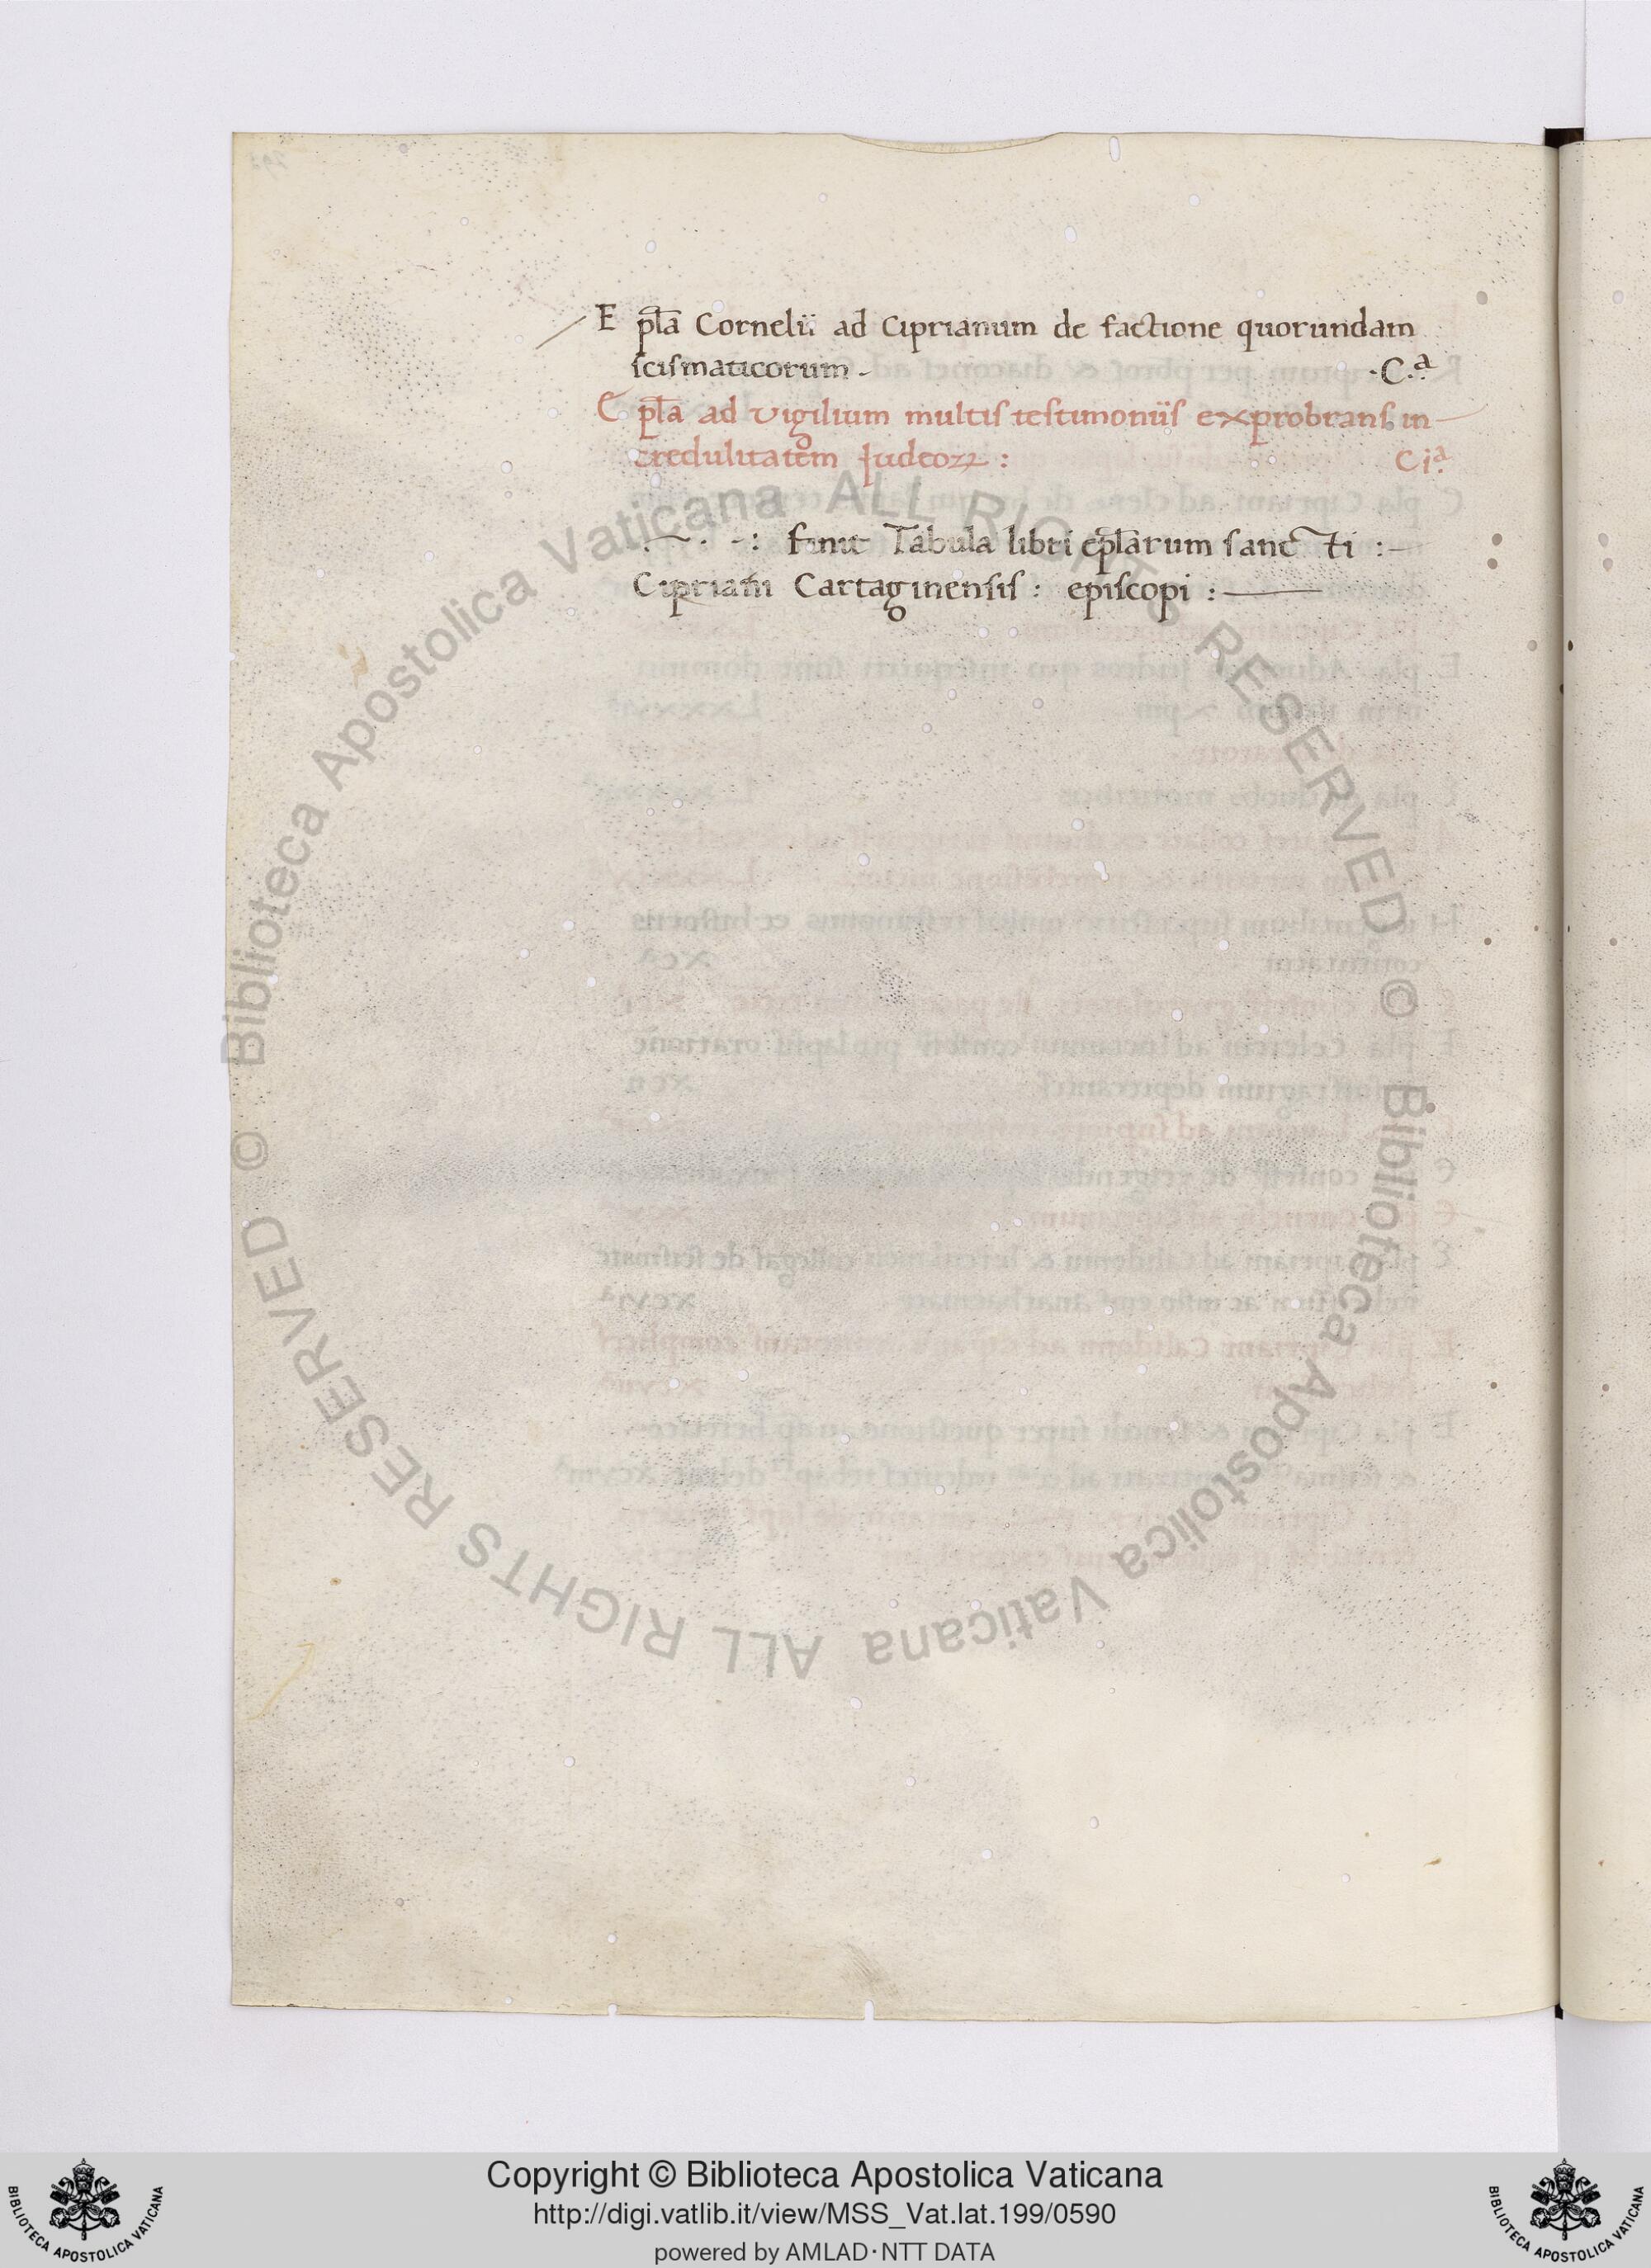 E pl̅a Cornelii ad Ciprianum de factione quorundam
scismaticorum. ·C.ª
E pl̅a ad vigilium multis testimoniis exprobrans in-
credulitatem Judeoꝝ : Ciª.
.~. -: finit Tabula libri epl̅arum sancti :-
Cipriani Cartaginensis : episcopi :-
Biblioteca Apostolica Vaticana ALL RIGHTS RESERVED ©
Biblioteca Apostolica Vaticana ALL RIGHTS RESERVED ©
Copyright © Biblioteca Apostolica Vaticana
http://digi.vatlib.it/view/MSS_Vat.lat.199/0590
powered by AMLAD·NTT DATA
BIBLIOTECA APOSTOLICA VATICANA
BIBLIOTECA APOSTOLICA VATICANA